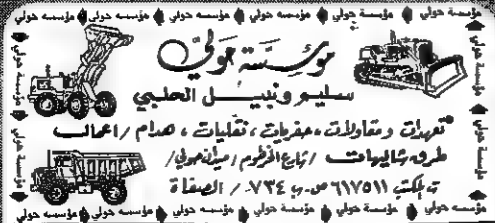 مؤسسة حولي مؤسسة حولي مؤسسة حولي مؤسسة حولي مؤسسة حولي
مؤسسة حولي
سليم ونبيل الحلبي
تعهدات ومقاولات، حفريات، نقليات، هدام / اعمال
طرق شاليهات / شارع الخرطوم / ميدان حولي /
ت بالمكتب ٦١٧٥١١ ص.ب ٧٣٤ / الصفاة
مؤسسة حولي مؤسسة حولي مؤسسة حولي مؤسسة حولي مؤسسة حولي